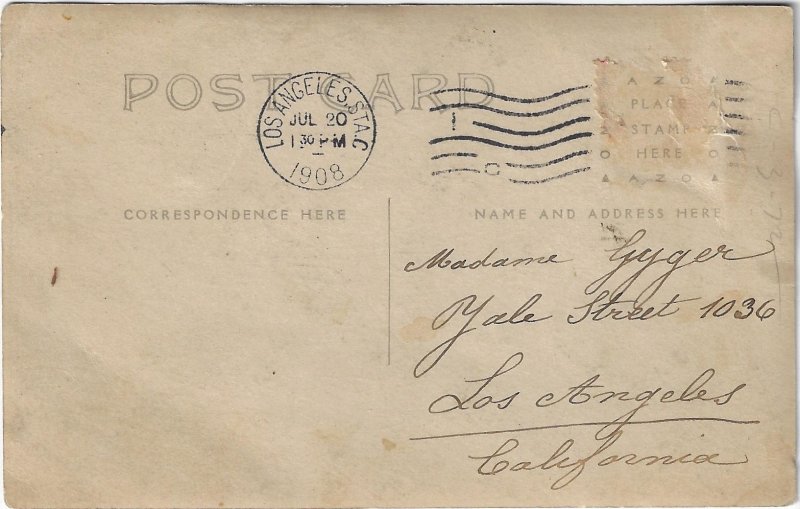 POST CARD
LOS ANGELES, STA. C
JUL 20
1 30 PM
1908
I
C
AZO
PLACE
STAMP
HERE
AZO
CORRESPONDENCE HERE
NAME AND ADDRESS HERE
Madame Gyger
Yale Street 1036
Los Angeles
California